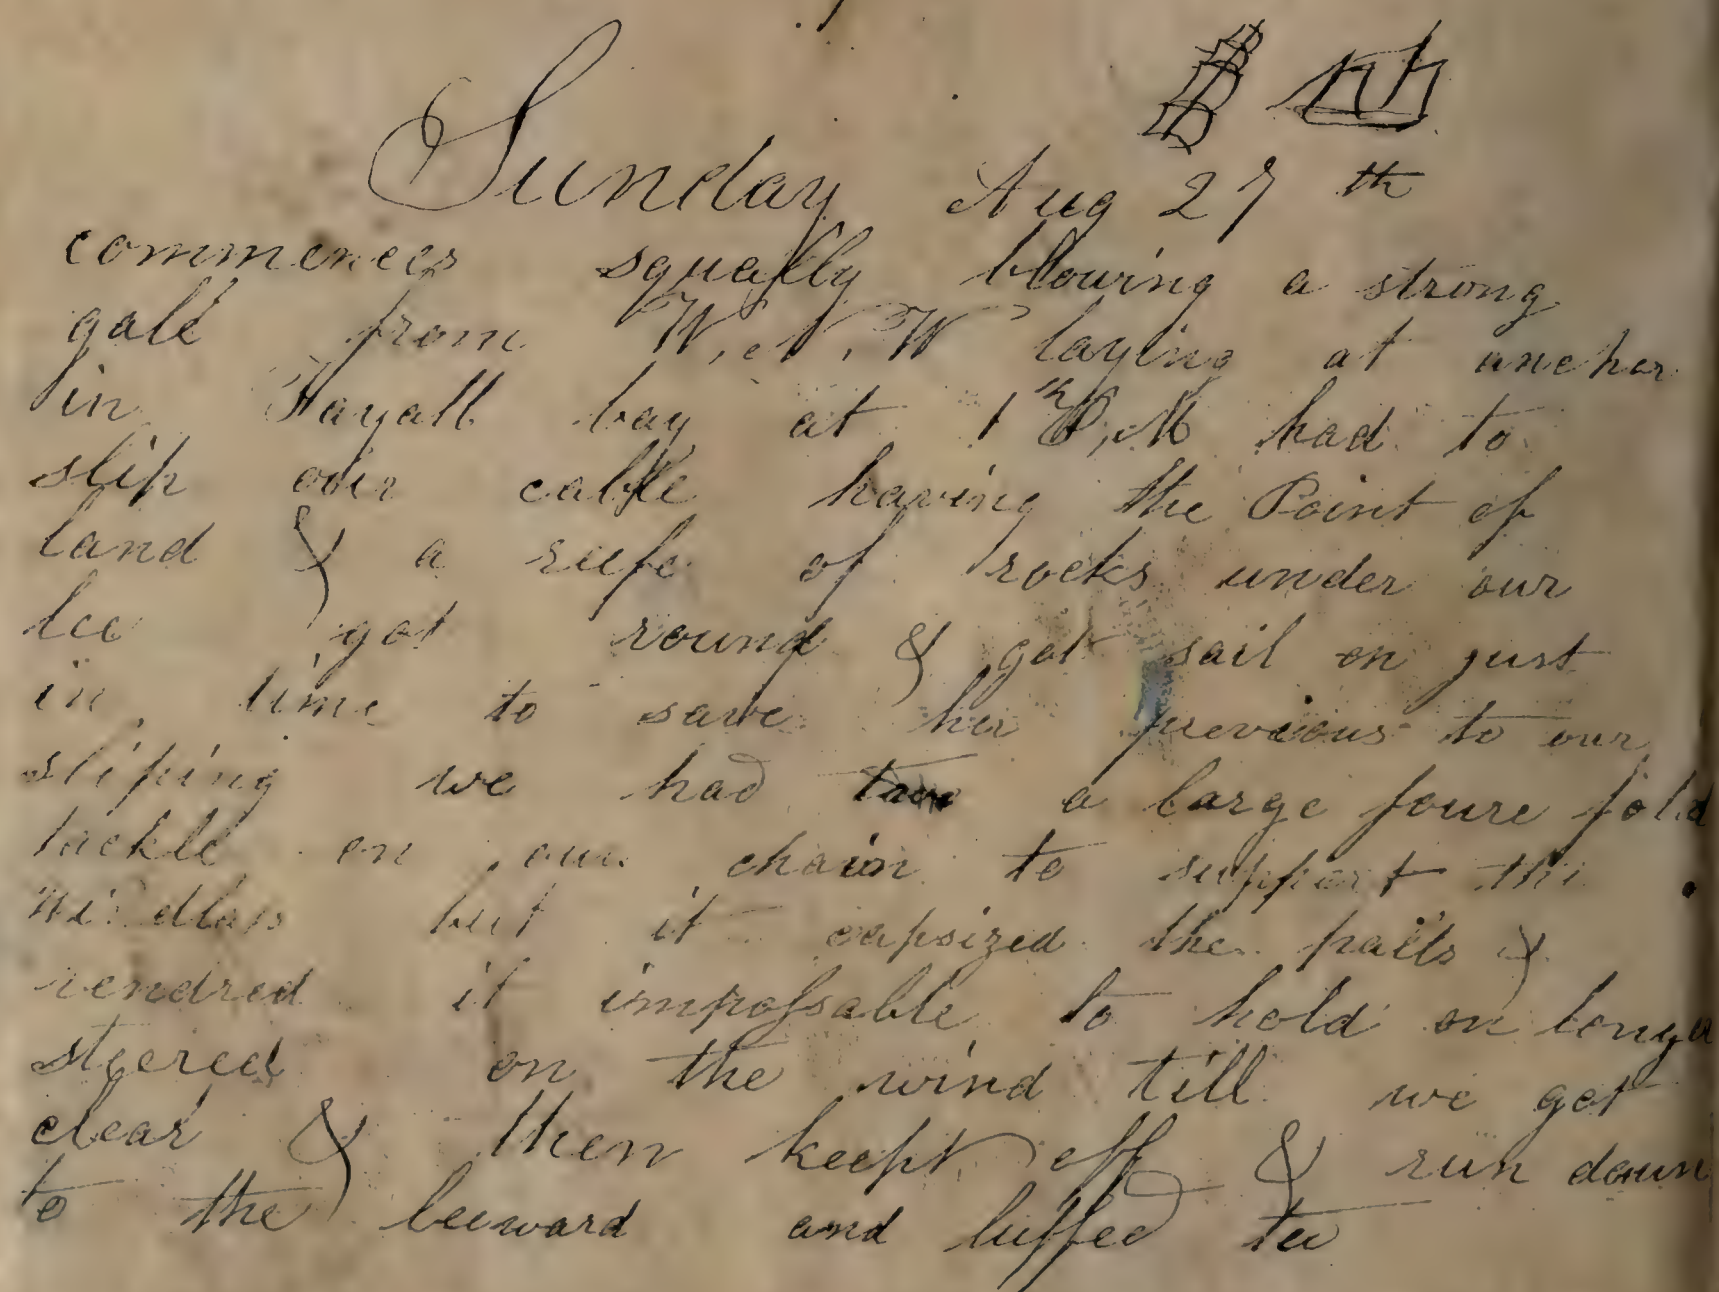 Sunday Aug 27th
commences squally blowing a strong
gale from W, N, W laying at anchor
in Fayall bay at 1 P,M had to
slip our cable having the Point of
land & a reefe of rocks under our
lee got round & got sail on just
in time to save her previous to our
sliping we had a large foure fold
tackle on our chain to support the
windlass but it capsized the palls &
rendred it impossable to hold on longer
steered on the wind till we got
clear & then keept off & run down
to the leeward and luffed too